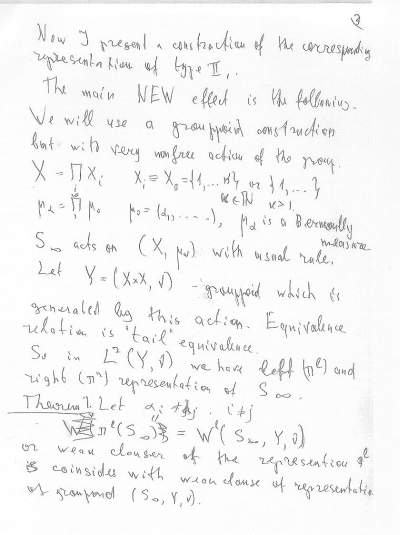 3
Now I present a construction of the corresponding
representation of type II₁.
The main NEW effect is the following.
We will use a grouppoid construction
but with very nonfree action of the group.
X = ∏ Xᵢ Xᵢ = X₀ = {1, ... n} or {1, ... }
μ_α = ∏ μ₀ μ₀ = (α₁, .... ), μ_α is a Bernoully
measure
S_∞ acts on (X, μ_α) with usual rule.
Let Y = (X×X, ν) - grouppoid which is
generated by this action. Equivalence
relation is "tail" equivalence.
So in L²(Y, ν) we have left (π^l) and
right (π^r) representation of S_∞.
Theorem 1. Let αᵢ ≠ αⱼ. i ≠ j
π^l(S_∞) = W^l(S_∞, Y, ν)
or weak clouser of the represention π^l
coinsides with weak clouse of representatio
of grouppoid (S_∞, Y, ν).